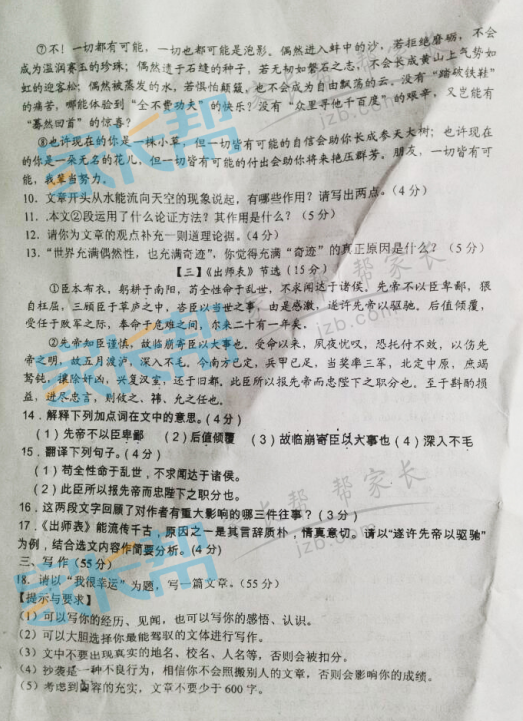 ⑦不！一切都有可能，一切也都可能是泡影。偶然进入蚌中的沙，若拒绝磨砺，不会
成为温润赛玉的珍珠；偶然遗于石缝的种子，若无韧如磐石之志，不会长成黄山上气势如
虹的迎客松；偶然被蒸发的水，若惧怕颠簸，也不会成为自由飘荡的云。没有“踏破铁鞋”
的痛苦，哪能体验到“全不费功夫”的快乐？没有“众里寻他千百度”的艰辛，又岂能有
“蓦然回首”的惊喜？
⑧也许现在的你是一株小草，但一切皆有可能的自信会助你长成参天大树；也许现在
的你是一朵无名的花儿，但一切皆有可能的付出会助你将来艳压群芳。朋友，一切皆有可
能，我辈当努力。
10．文章开头从水能流向天空的现象说起，有哪些作用？请写出两点。（4分）
11．本文②段运用了什么论证方法？其作用是什么？（5分）
12．请你为文章的观点补充一则道理论据。（4分）
13．“世界充满偶然性，也充满奇迹”，你觉得充满“奇迹”的真正原因是什么？（5分）
【三】《出师表》节选（15分）
①臣本布衣，躬耕于南阳，苟全性命于乱世，不求闻达于诸侯。先帝不以臣卑鄙，猥
自枉屈，三顾臣于草庐之中，咨臣以当世之事，由是感激，遂许先帝以驱驰。后值倾覆，
受任于败军之际，奉命于危难之间，尔来二十有一年矣。
②先帝知臣谨慎，故临崩寄臣以大事也。受命以来，夙夜忧叹，恐托付不效，以伤先
帝之明，故五月渡泸，深入不毛。今南方已定，兵甲已足，当奖率三军，北定中原，庶竭
驽钝，攘除奸凶，兴复汉室，还于旧都。此臣所以报先帝而忠陛下之职分也。至于斟酌损
益，进尽忠言，则攸之、祎、允之任也。
14．解释下列加点词在文中的意思。（4分）
（1）先帝不以臣卑鄙 （2）后值倾覆 （3）故临崩寄臣以大事也（4）深入不毛
15．翻译下列句子。（4分）
（1）苟全性命于乱世，不求闻达于诸侯。
（2）此臣所以报先帝而忠陛下之职分也。
16．这两段文字回顾了对作者有重大影响的哪三件往事？（3分）
17．《出师表》能流传千古，原因之一是其言辞质朴，情真意切。请以“遂许先帝以驱驰”
为例，结合选文内容作简要分析。（4分）
三、写作（55分）
18．请以“我很幸运”为题，写一篇文章。（55分）
【提示与要求】
（1）可以写你的经历、见闻，也可以写你的感悟、认识。
（2）可以大胆选择你最能驾驭的文体进行写作。
（3）文中不要出现真实的地名、校名、人名等，否则会被扣分。
（4）抄袭是一种不良行为，相信你不会照搬别人的文章，否则会影响你的成绩。
（5）考虑到内容的充实，文章不要少于600字。
家长帮
帮家长
jzb.com